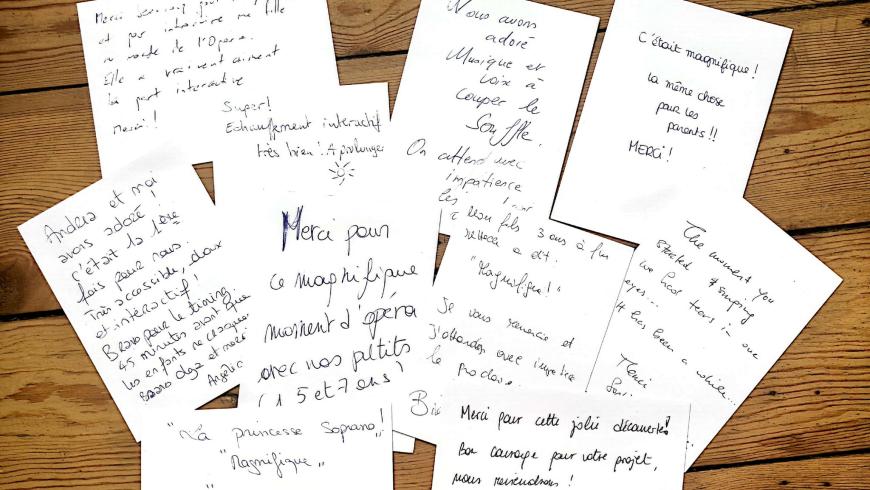 Merci beaucoup pour
et par
la route de l'Opéra.
Elle a vraiment aimé
la part interactive
Merci!!
Super!
Echauffement interactif
très bien ! A prolonger
Nous avons
adoré
Musique et
voix à
couper le
Souffle.
On attend avec
impatience
les
C'était magnifique !
La même chose
pour les
parents !!
MERCI !
et moi
avons adoré !
c'était la 1ère
fois pour nous.
Très accessible, doux
et interactif !
Bravo pour le timing
45 minutes avant que
les enfants ne
Bravo et merci
Angelic
Merci pour
ce magnifique
moment d'opéra
avec nos petits
( 5 et 7 ans )
fils 3 ans à
a dit :
"Magnifique ! "
Je vous remercie et
J'attendrai avec
le prochain.
The moment you
started
we had tears in our
eyes...
It has been a while...
Merci
"La princesse Soprano!
"Magnifique"
Merci pour cette jolie découverte!
Bon courage pour votre projet,
nous reviendrons !